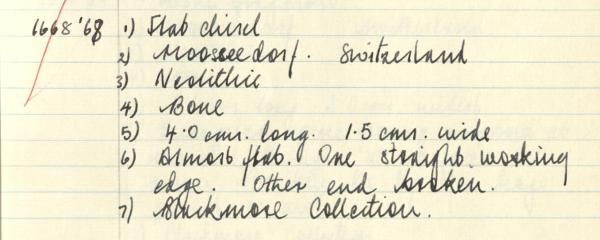 1668 '68 1) Flat chisel
2) Moosseedorf. Switzerland
3) Neolithic
4) Bone
5) 4.0 cms. long. 1.5 cms. wide
6) Almost flat. One straight working
edge. Other end broken.
7) Blackmore Collection.